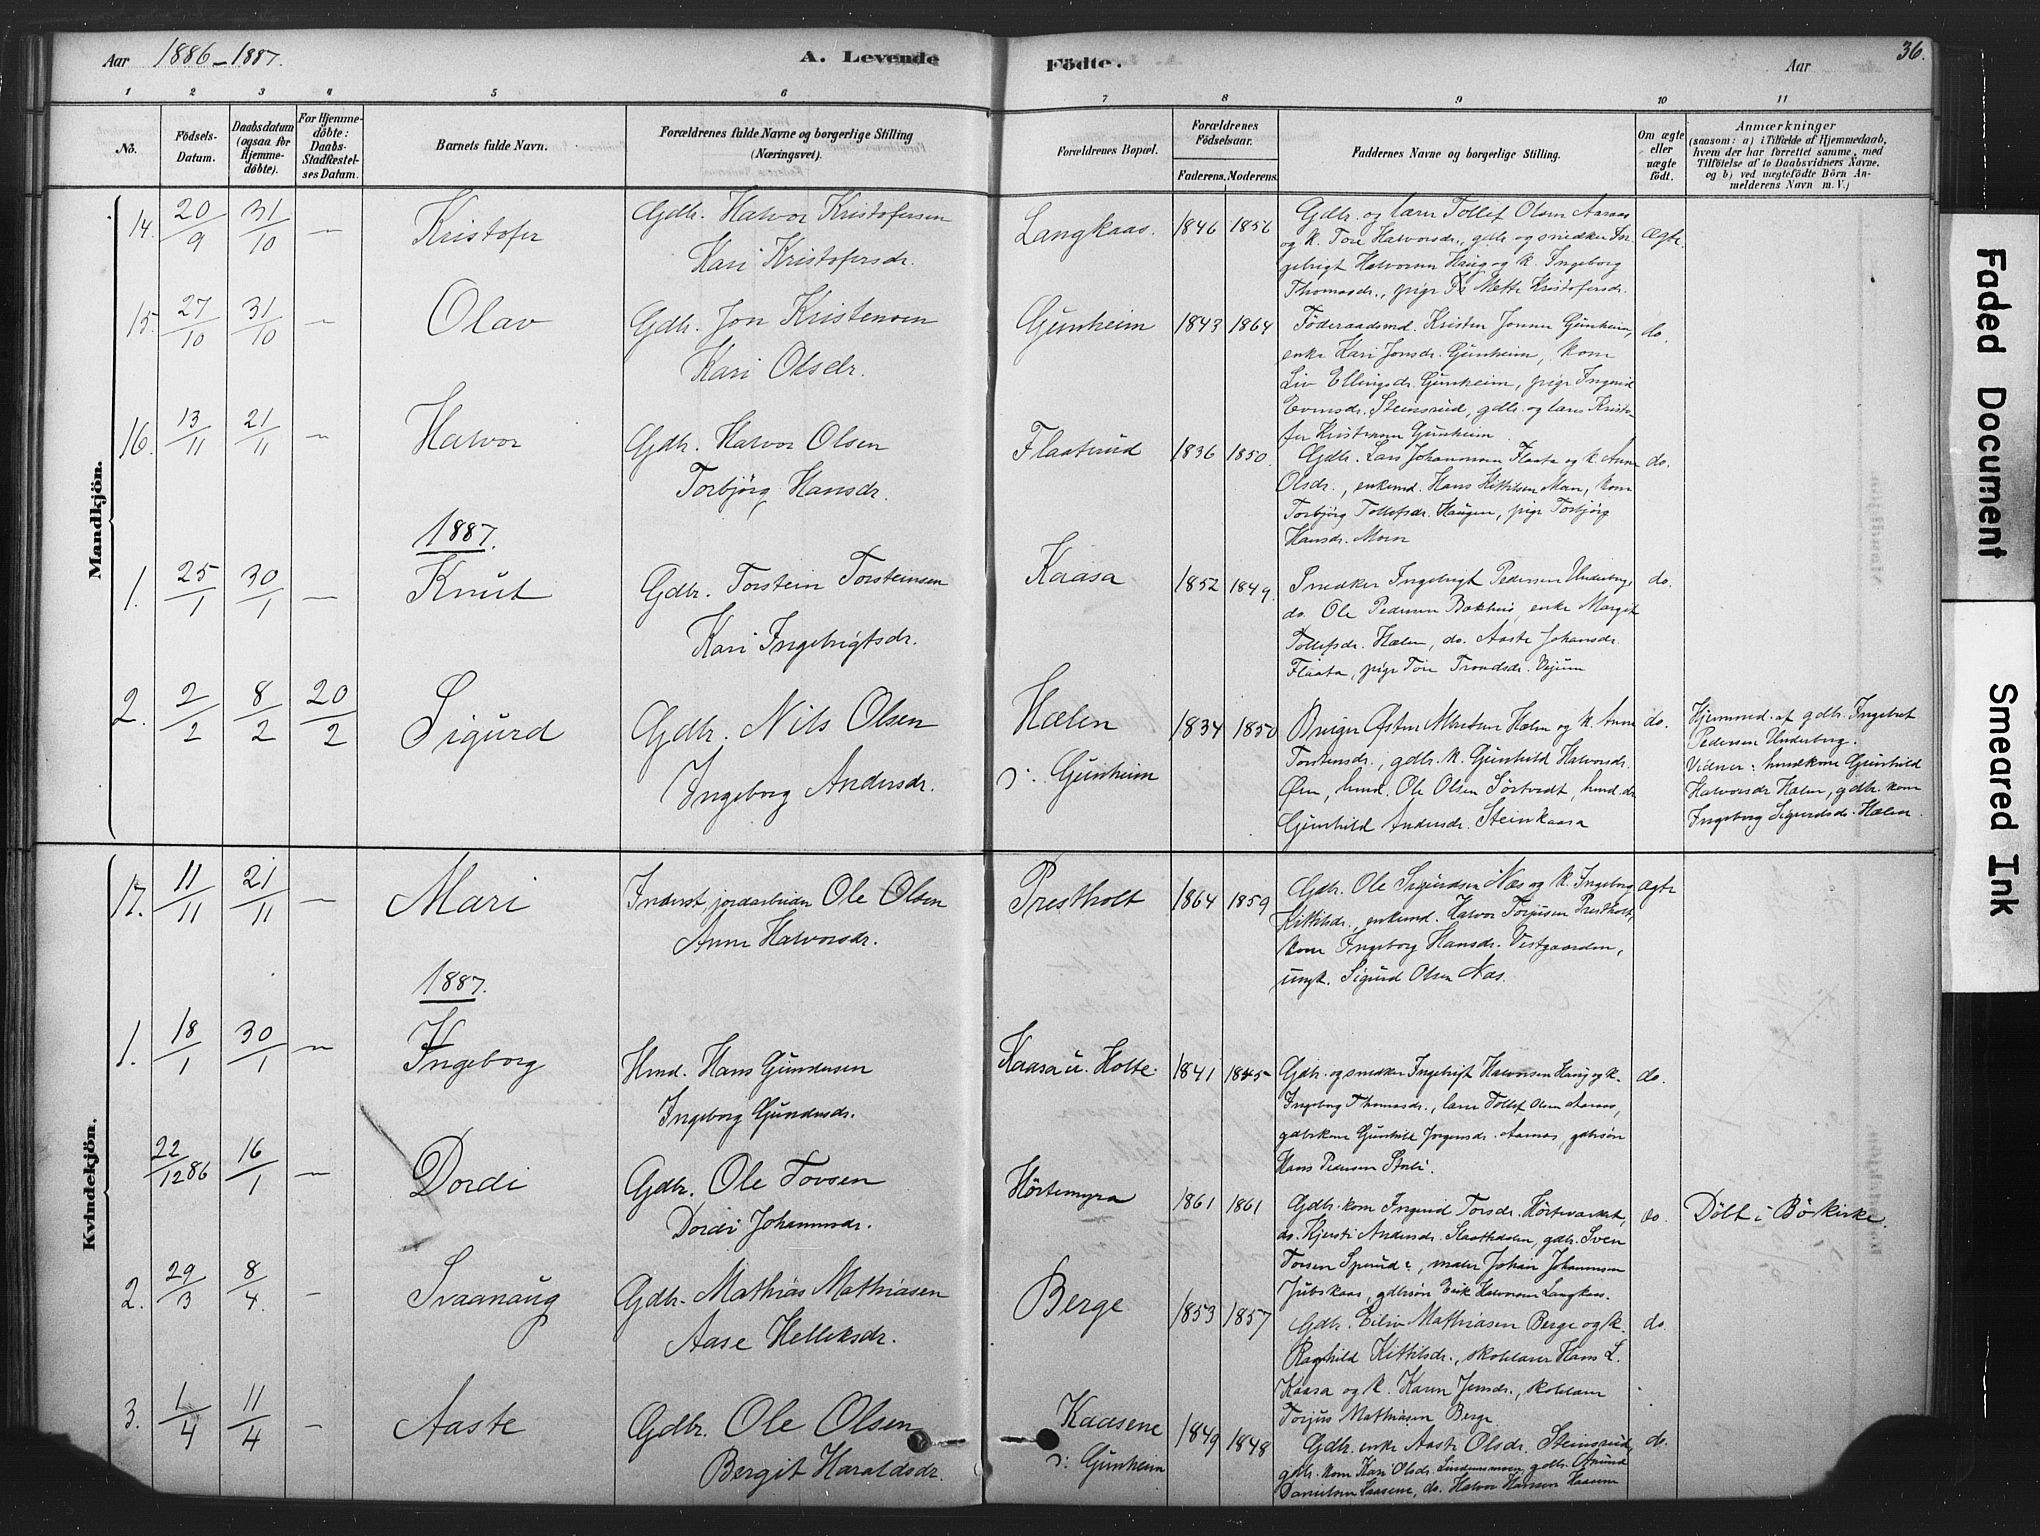 Aar 1886-1887.
A. Levende Födte.
Aar
36.
1 2 3 4 5 6 7 8 9 10 11
No.
Födsels-Datum.
Daabsdatum (ogsaa for Hjemmedöbte).
For Hjemmedöbte: Daabs-Stadfæstelses Datum.
Barnets fulde Navn.
Forældrenes fulde Navne og borgerlige Stilling (Næringsvei).
Forældrenes Bopæl.
Forældrenes Födselsaar.
Faderens. Moderens.
Faddernes Navne og borgerlige Stilling.
Om ægte eller uægte födt.
Anmærkninger
(saasom: a) i Tilfælde af Hjemmedaab, hvem der har forrettet samme, med Tilföielse af to Daabsvidners Navne, og b) ved uægtefödte Börn Anmelderens Navn m. V.)
Mandkjön.
14. 20/9 31/10 — Kristofer
Gdbr. Halvor Kristofersen
Kari Kristofersdr.
Langkaas. 1846 1856
Gdbr. og lærer Tollef Olsen Aarnas
og k. Tore Halvorsdr., gdbr. og snedker In-
gebrigt Halvorsen Haug og k. Ingeborg
Thomasdr., pige Mette Kristofersdr.
Ægte.
15. 27/10 31/10 — Olav
Gdbr. Jon Kristensen
Kari Olsdr.
Gunheim 1843 1864
Föderaadsmd. Kristen Jonsen Gunheim,
enke Kari Jonsdr. Gunheim, kone
Liv Ellingsdr. Gunheim, pige Ingerid
Evensdr. Steinsrud, gdbr. og lærer Kristo-
fer Kristensen Gunheim
do.
16. 13/11 21/11 — Halvor
Gdbr. Halvor Olsen
Torbjörg Hansdr.
Flaaterud 1836 1850.
Gdbr. Lars Johannesen Flaata og k. Anne
Olsdr., enkemd. Hans Kittilsen Moen, kone
Torbjörg Tollefsdr. Haugen, pige Torbjörg
Hansdr. Moen
do.
1887.
1. 25/1 30/1 — Knut
Gdbr. Torstein Torsteinsen
Kari Ingebrigtsdr.
Kaasa 1852 1849.
Snedker Ingebrigt Pedersen Underberg,
do. Ole Pedersen Bakhus, enke Margit
Tollefsdr. Hælen, do. Aaste Johansdr.
Flaata, pige Tore Trondsdr. Vejum
do.
2. 2/2 8/2 20/2 Sigurd
Gdbr. Nils Olsen
Ingeborg Andersdr.
Hælen
ɔ: Gunheim
1834 1850
Bruger Østen Hælen og k. Anne
Torstensdr., gdbr. k. Gunhild Halvorsdr.
Øen, hmd. Ole Olsen Sörtvedt, hmd. dr
Gunhild Andersdr. Steinkaasa
do.
Hjemmed. af gdbr. Ingebret
Pedersen Underberg.
Vidner: husdkone Gunhild
Halvorsdr Hælen, gdbr. kone
Ingeborg Sigurdsdr. Hælen.
Kvindekjön.
17. 11/11 21/11 — Mari
Inderst, jordarbeider Ole Olsen
Anne Halvorsdr.
Prestholt 1864 1859
Gdbr. Ole Sigurdsen Næs og k. Ingeborg
Kittilsdr., enkemd. Halvor Torjusen Prestholt,
kone Ingeborg Hansdr. Vestgaarden,
ungk. Sigurd Olsen Næs.
ægte
1887.
1. 18/1 30/1 — Ingeborg
Hmd. Hans Gundersen
Ingeborg Gundersdr.
Kaasa u. Holte. 1841 1845
Gdbr. og snedker Ingebrigt Halvorsen Haug og k.
Ingeborg Thomasdr., lærer Tollef Olsen Aarnas,
gdbrkone Gunhild Jörgensdr. Aarnas, gdbrsön
Hans Pedersen Storli.
do.
22/12 86 16/1 — Dordi
Gdbr. Ole Tovsen
Dordi Johannesdr.
Hörtemyra 1861 1861
Gdbr. kone Ingerid Torsdr. Hörteværket,
do. Kjersti Andersdr. Slaattedalen, gdbr. Sven
Torsen Sperud, maler Johan Johannesen
Jubskaas, gdbrsön Erik Halvorsen Langkaas.
do.
Döbt i Bö kirke.
2. 29/3 8/4. — Svaanaug
Gdbr. Mathias Mathiasen
Aase Helleksdr.
Berge 1853 1857
Gdbr. Eiliv Mathiasen Berge og k.
Ragnhild Kittilsdr., skolelærer Hans L.
Kaasa og k. Karen Jensdr., skolelærer
Torjus Mathiasen Berge.
do.
3. 1/4 11/4 — Aaste
Gdbr. Ole Olsen
Bergit Haraldsdr.
Kaasene
ɔ: Gunheim
1849 1848
Gdbr. enke Aaste Olsdr. Steinsrud,
gdbr. kone Kari Olsdr. Lindemoen, gdbr. Amund
Danielsen Kaasene, do. Halvor Hansen Kaasene
do.
Faded Document
Smeared Ink